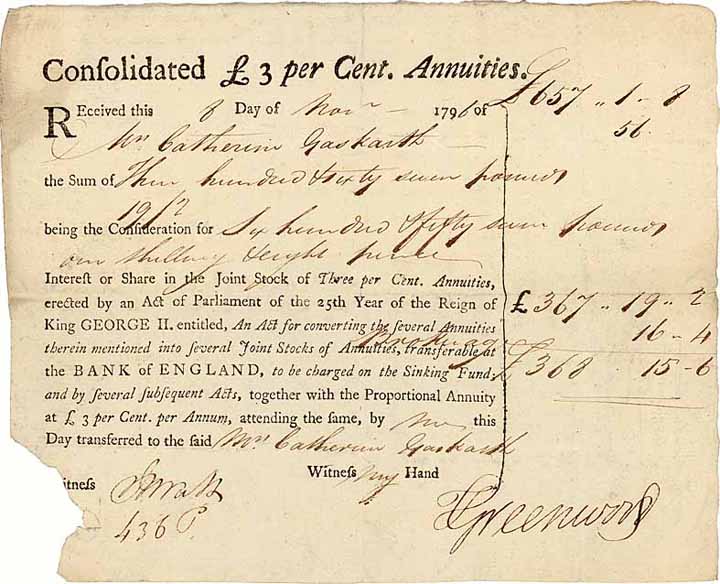 Conſolidated £ 3 per Cent. Annuities.
£657 „ 1 - 8
56
REceived this 8 Day of Novr 1796 of
Mrs Catherine Gaskarth
the Sum of Three hundred & sixty seven pounds
19/2
being the Conſideration for Six hundred & fifty seven pounds
one shilling & eight pence
Intereſt or Share in the Joint Stock of Three per Cent. Annuities,
erected by an Act of Parliament of the 25th Year of the Reign of
£ 367 „ 19 „ 2
King GEORGE II. entitled, An Act for converting the ſeveral Annuities
Brokerage 16 - 4
therein mentioned into ſeveral Joint Stocks of Annuities, transferable at
the BANK of ENGLAND, to be charged on the Sinking Fund;
£ 368 . 15 - 6
and by ſeveral ſubſequent Acts, together with the Proportional Annuity
at £ 3 per Cent. per Annum, attending the ſame, by me this
Day transferred to the ſaid Mrs Catherine Gaskarth
Witneſs my Hand
itneſs
436 P.
Greenwood